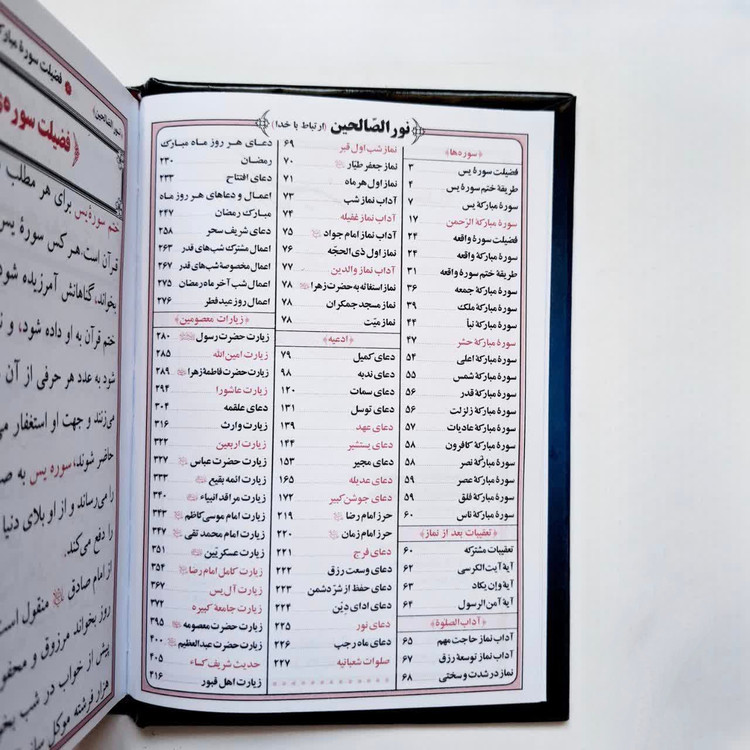 نور الصّالحین (ارتباط با خدا)
سوره‌ها
فضیلت سورهٔ یس ۳
طریقهٔ ختم سورهٔ یس ۴
سورهٔ مبارکهٔ یس ۷
سورهٔ مبارکهٔ الرّحمن ۱۷
فضیلت سورهٔ واقعه ۲۴
سورهٔ مبارکهٔ واقعه ۲۴
طریقهٔ ختم سورهٔ واقعه ۳۱
سورهٔ مبارکهٔ جمعه ۳۶
سورهٔ مبارکهٔ ملک ۳۹
سورهٔ مبارکهٔ نبأ ۴۴
سورهٔ مبارکهٔ حشر ۴۷
سورهٔ مبارکهٔ اعلی ۵۴
سورهٔ مبارکهٔ شمس ۵۵
سورهٔ مبارکهٔ قدر ۵۶
سورهٔ مبارکهٔ زلزلت ۵۶
سورهٔ مبارکهٔ عادیات ۵۷
سورهٔ مبارکهٔ کافرون ۵۸
سورهٔ مبارکهٔ نصر ۵۸
سورهٔ مبارکهٔ عصر ۵۹
سورهٔ مبارکهٔ فلق ۵۹
سورهٔ مبارکهٔ ناس ۶۰
تعقیبات بعد از نماز
تعقیبات مشترکه ۶۰
آیهٔ آیت الکرسی ۶۲
آیهٔ وإن یکاد ۶۳
آیهٔ آمن الرسول ۶۴
آداب الصلوة
آداب نماز حاجت مهم ۶۵
آداب نماز توسعهٔ رزق ۶۷
نماز در شدت و سختی ۶۸
نماز شب اول قبر ۶۹
نماز جعفر طیّار ۷۰
نماز اول هر ماه ۷۱
آداب نماز شب ۷۳
آداب نماز غفیله ۷۴
آداب نماز امام جواد ۷۵
نماز اول ذی الحجّه ۷۶
آداب نماز والدین ۷۷
نماز استغاثه به حضرت زهرا ۷۸
نماز مسجد جمکران ۷۸
نماز میّت ۷۸
ادعیه
دعای کمیل ۷۹
دعای ندبه ۹۸
دعای سمات ۱۲۰
دعای توسل ۱۳۱
دعای عهد ۱۳۹
دعای یستشیر ۱۴۴
دعای مجیر ۱۵۳
دعای عدیله ۱۶۵
دعای جوشن کبیر ۱۷۲
حرز امام رضا ۲۱۹
حرز امام زمان ۲۲۰
دعای فرج ۲۲۱
دعای وسعت رزق ۲۲۲
دعای حفظ از شرّ دشمن ۲۲۳
دعای ادای دِیْن ۲۲۴
دعای نور ۲۲۵
دعای ماه رجب ۲۲۶
صلوات شعبانیه ۲۲۷
دعای هر روز ماه مبارک
رمضان ۲۳۰
دعای افتتاح ۲۳۳
اعمال و دعاهای هر روز ماه
مبارک رمضان ۲۴۷
دعای شریف سحر ۲۵۸
اعمال مشترک شب‌های قدر ۲۶۳
اعمال مخصوصهٔ شب‌های قدر ۲۶۷
اعمال شب آخر ماه رمضان ۲۷۵
اعمال روز عید فطر ۲۷۶
زیارات معصومین
زیارت حضرت رسول ۲۸۰
زیارت امین الله ۲۸۵
زیارت حضرت فاطمهٔ زهرا ۲۸۹
زیارت عاشورا ۲۹۴
دعای علقمه ۳۰۴
زیارت وارث ۳۱۶
زیارت اربعین ۳۲۲
زیارت حضرت عباس ۳۲۷
زیارت ائمه بقیع ۳۳۳
زیارت مراقد انبیاء ۳۴۰
زیارت امام موسی کاظم ۳۴۳
زیارت امام محمد تقی ۳۴۷
زیارت عسکریّین ۳۵۱
زیارت کامل امام رضا ۳۵۴
زیارت آل یس ۳۶۷
زیارت جامعهٔ کبیره ۳۷۲
زیارت حضرت معصومه ۳۹۵
زیارت حضرت عبدالعظیم ۴۰۰
حدیث شریف کساء ۴۰۵
زیارت اهل قبور ۴۱۶
فضیلت سورهٔ مبارک
نور الصالحین
فضیلت سوره‌ی
ختم سورهٔ یس برای هر مطلب
قرآن است، هر کس سورهٔ یس
بخواند، گناهانش آمرزیده شود
ختم قرآن به او داده شود، و
شود به عدد هر حرفی از آن
می‌زنند و جهت او استغفار
حاضر شوند، سوره یس به
را می‌رساند و از او بلای دنیا
را دفع می‌کند.
از امام صادق منقول است
روز بخواند مرزوق و محفوظ
پیش از خواب در شب
هزار فرشته موکل